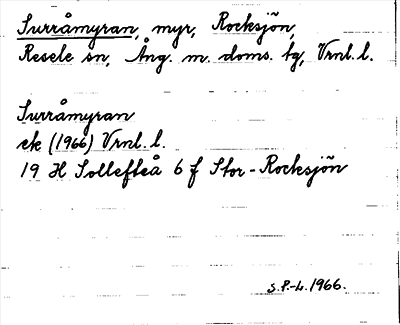 Surråmyran, myr, Rocksjön,
Resele sn, Ång. m. doms. tg, Vrnl. l.
Surråmyran
ek (1966) Vrnl. l.
19 H Sollefteå 6 f Stor-Rocksjön
S.P.-L. 1966.